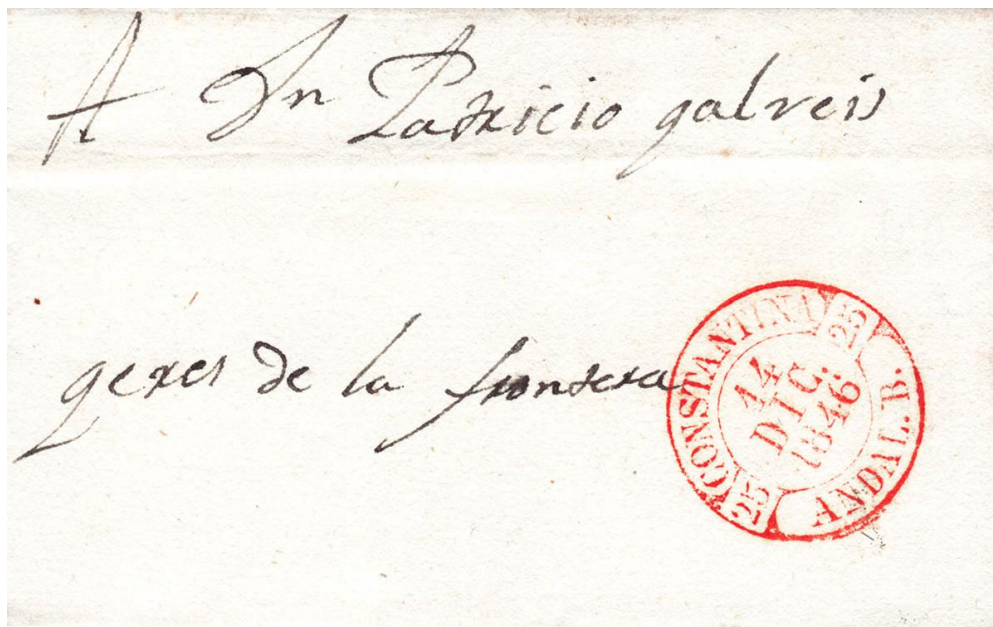 A Dn Patricio galveis
gexes de la frontera
CONSTANTINA
25
14
DIC.
1846
25
ANDAL. B.